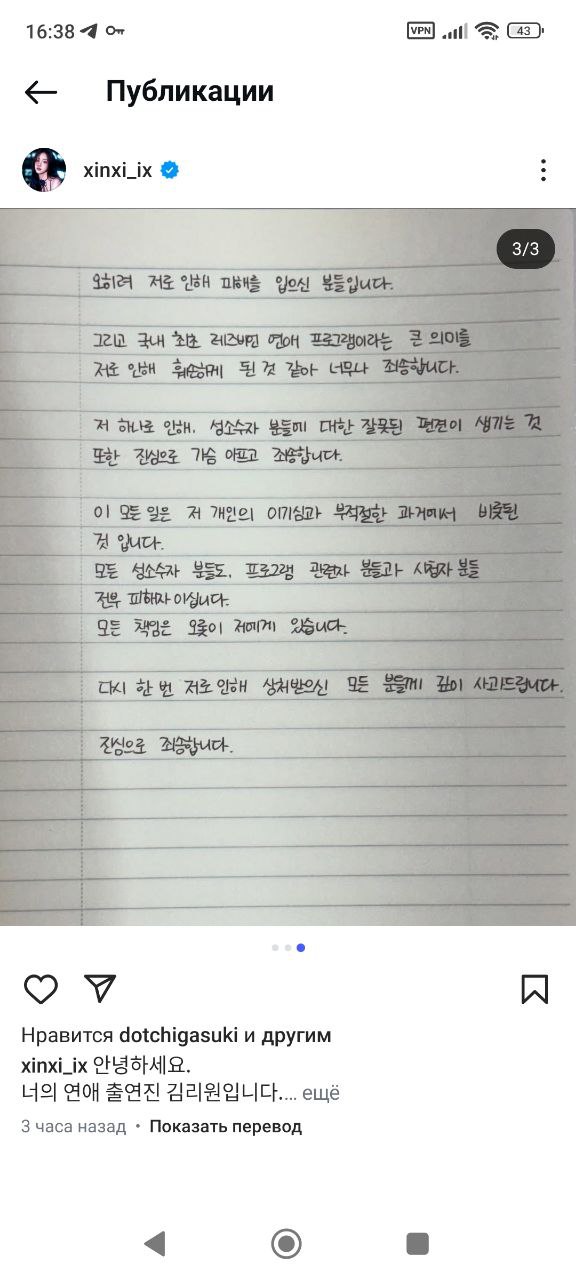 16:38
VPN
43
Публикации
xinxi_ix
3/3
오히려 저로 인해 피해를 입으신 분들입니다.
그리고 국내 최초 레즈비언 연애 프로그램이라는 큰 의미를
저로 인해 훼손하게 된 것 같아 너무나 죄송합니다.
저 하나로 인해, 성소수자 분들에 대한 잘못된 편견이 생기는 것
또한 진심으로 가슴 아프고 죄송합니다.
이 모든 일은 저 개인의 이기심과 부적절한 과거에서 비롯된
것 입니다.
모든 성소수자 분들도, 프로그램 관련자 분들과 시청자 분들
전부 피해자 이십니다.
모든 책임은 오롯이 저에게 있습니다.
다시 한 번 저로 인해 상처받으신 모든 분들께 깊이 사과드립니다.
진심으로 죄송합니다.
Нравится dotchigasuki и другим
xinxi_ix 안녕하세요.
너의 연애 출연진 김리원입니다.... ещё
3 часа назад • Показать перевод